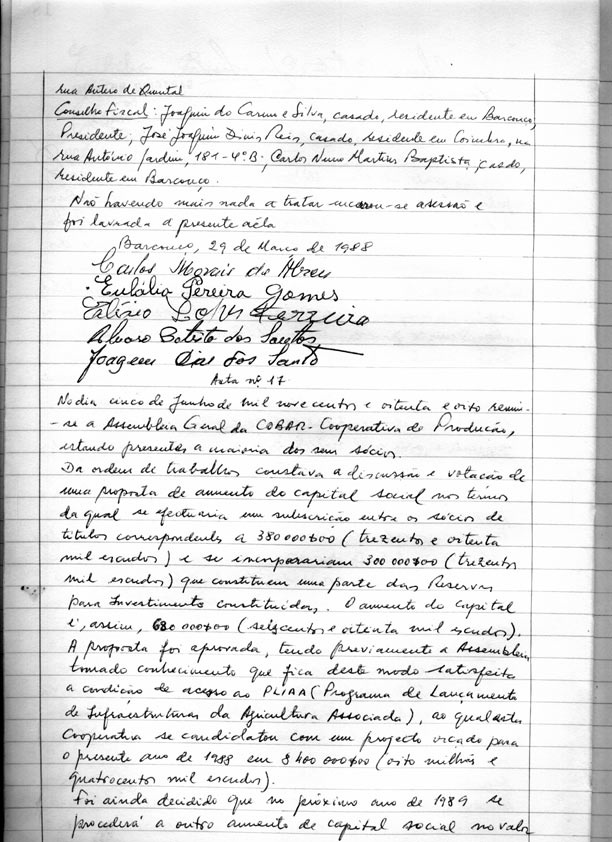 rua Antero de Quental
Conselho Fiscal: Joaquim do Carmo e Silva, casado, residente em Barcouço,
Presidente; José Joaquim Dinis Reis, casado, residente em Coimbra, na
rua António Jardim, 181-4ºB; Carlos Nuno Martins Baptista, casado,
residente em Barcouço.
Não havendo mais nada a tratar encerrou-se a sessão e
foi lavrada a presente acta
Barcouço, 29 de Março de 1988
Carlos Morais de Abreu
Eulália Pereira Gomes
Elísio Lopes Ferreira
Alvaro Batista dos Santos
Joaquim Dias dos Santos
Acta nº 17
No dia cinco de Junho de mil novecentos e oitenta e oito reuniu-
-se a Assembleia Geral da COBAR-Cooperativa de Produção,
estando presentes a maioria dos seus sócios.
Da ordem de trabalhos constava a discussão e votação de
uma proposta de aumento do capital social nos termos
da qual se efectuaria uma subscrição entre os sócios de
titulos correspondentes a 380 000$00 (trezentos e oitenta
mil escudos) e se incorporariam 300 000$00 (trezentos
mil escudos) que constituem uma parte das Reservas
para Investimento constituidas. O aumento do capital
é, assim, 680 000$00 (seiscentos e oitenta mil escudos).
A proposta foi aprovada, tendo previamente a Assembleia
tomado conhecimento que fica deste modo satisfeita
a condição de acesso ao PLIAA (Programa de Lançamento
de Infraestruturas da Agricultura Associada), ao qual esta
Cooperativa se candidatou com um projecto orçado para
o presente ano de 1988 em 8 400 000$00 (oito milhões e
quatrocentos mil escudos).
Foi ainda decidido que no próximo ano de 1989 se
procederá a outro aumento de capital social no valor